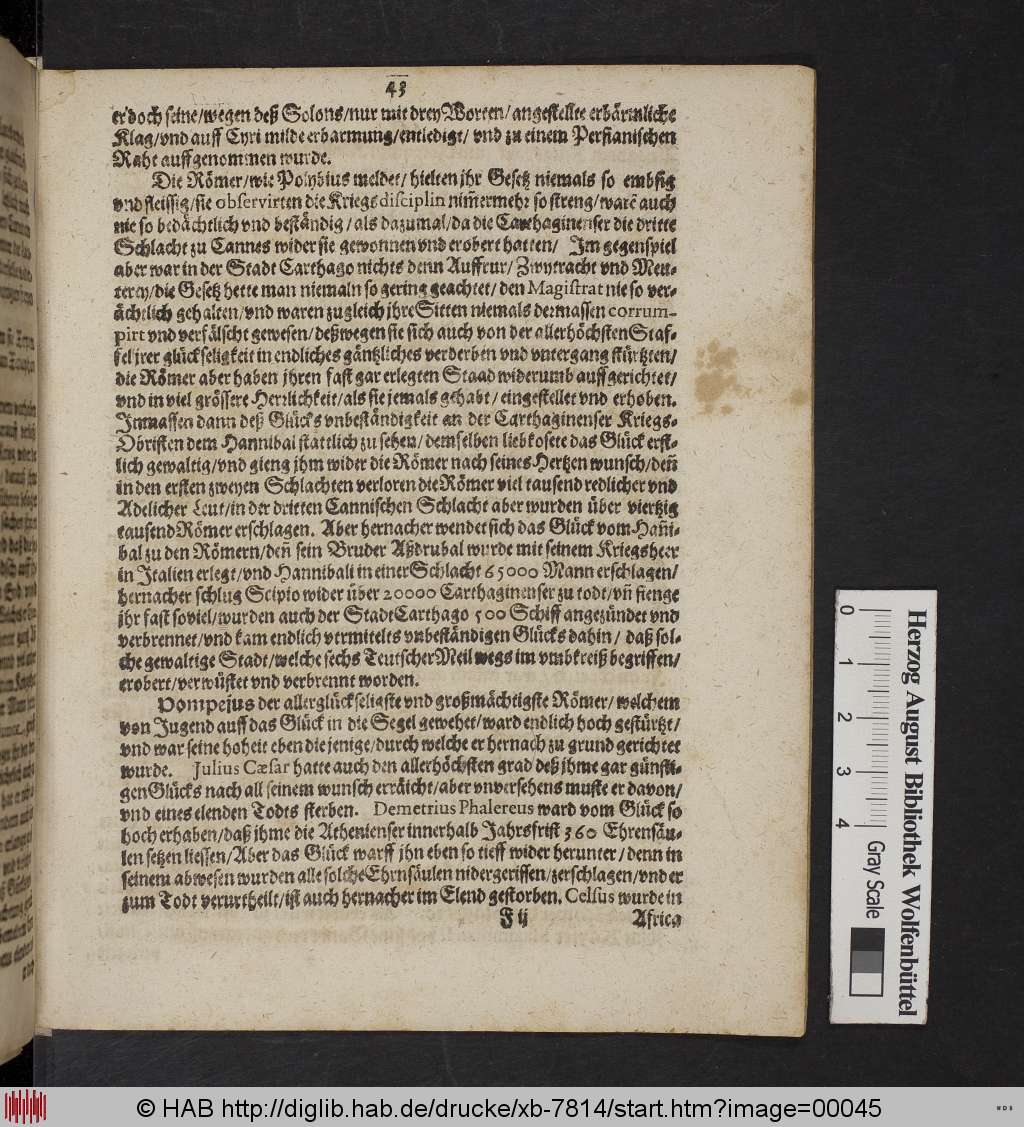 43
er doch seine/wegen deß Solons/nur mit drey Worten/angestellte erbärmliche
Klag/vnd auff Cyri milde erbarmung/entledigt/ vnd zu einem Persianischen
Raht auffgenommen wurde.
Die Römer/wie Polybius meldet/ hielten jhr Gesetz niemals so embsig
vnd fleissig/sie observirten die Kriegs disciplin nim̃ermehr so streng/warẽ auch
nie so bedächtlich vnd beständig/als dazumal/da die Carthaginenser die dritte
Schlacht zu Cannes wider sie gewonnen vnd erobert hatten/ Im gegenspiel
aber war in der Stadt Carthago nichts denn Auffrur/Zwytracht vnd Meu-
terey/die Gesetz hette man niemaln so gering geachtet/den Magistrat nie so ver-
ächtlich gehalten/vnd waren zugleich jhre Sitten niemals dermassen corrum-
pirt vnd verfälscht gewesen/deßwegen sie sich auch von der allerhöchsten Staf-
fel jrer glückseligkeit in endliches gäntzliches verderben vnd vntergang stürtzten/
die Römer aber haben jhren fast gar erlegten Staad widerumb auffgerichtet/
vnd in viel grössere Herrlichkeit/als sie jemals gehabt/eingestellet vnd erhoben.
Inmassen dann deß Glücks vnbeständigkeit an der Carthaginenser Kriegs-
Obristen dem Hannibal stattlich zu sehen/demselben liebkosete das Glück erst-
lich gewaltig/vnd gieng jhm wider die Römer nach seines Hertzen wunsch/deñ
in den ersten zweyen Schlachten verloren die Römer viel tausend redlicher vnd
Adelicher Leut/in der dritten Cannischen Schlacht aber wurden über viertzig
tausend Römer erschlagen. Aber hernacher wendet sich das Glück vom Hañi-
bal zu den Römern/deñ sein Bruder Aßdrubal wurde mit seinem Kriegsheer
in Italien erlegt/vnd Hannibali in einer Schlacht 65000 Mann erschlagen/
hernacher schlug Scipio wider über 20000 Carthaginenser zu todt/vñ fienge
jhr fast soviel/wurden auch der Stadt Carthago 500 Schiff angezündet vnd
verbrennet/vnd kam endlich vermitelts vnbeständigen Glücks dahin/ daß sol-
che gewaltige Stadt/welche sechs Teutscher Meil wegs im vmbkreiß begriffen/
erobert/verwüstet vnd verbrennt worden.
Pompejus der allerglückseligste vnd großmächtigste Römer/welchem
von Jugend auff das Glück in die Segel gewehet/ward endlich hoch gestürtzt/
vnd war seine hoheit eben die jenige/durch welche er hernach zu grund gerichtet
wurde. Julius Cæsar hatte auch den allerhöchsten grad deß jhme gar günsti-
gen Glücks nach all seinem wunsch erräicht/aber vnversehens muste er davon/
vnd eines elenden Todts sterben. Demetrius Phalereus ward vom Glück so
hoch erhaben/daß jhme die Athenienser innerhalb Jahrsfrist 360 Ehrensäu-
len setzen liessen/Aber das Glück warff jhn eben so tieff wider herunter/denn in
seinem abwesen wurden alle solche Ehrnsäulen nidergeriffen/zerschlagen/vnd er
zum Todt verurtheilt/ist auch hernacher im Elend gestorben. Celsus wurde in
F ij Africa
0 1 2 3 4
Gray Scale
Herzog August Bibliothek Wolfenbüttel
© HAB http://diglib.hab.de/drucke/xb-7814/start.htm?image=00045